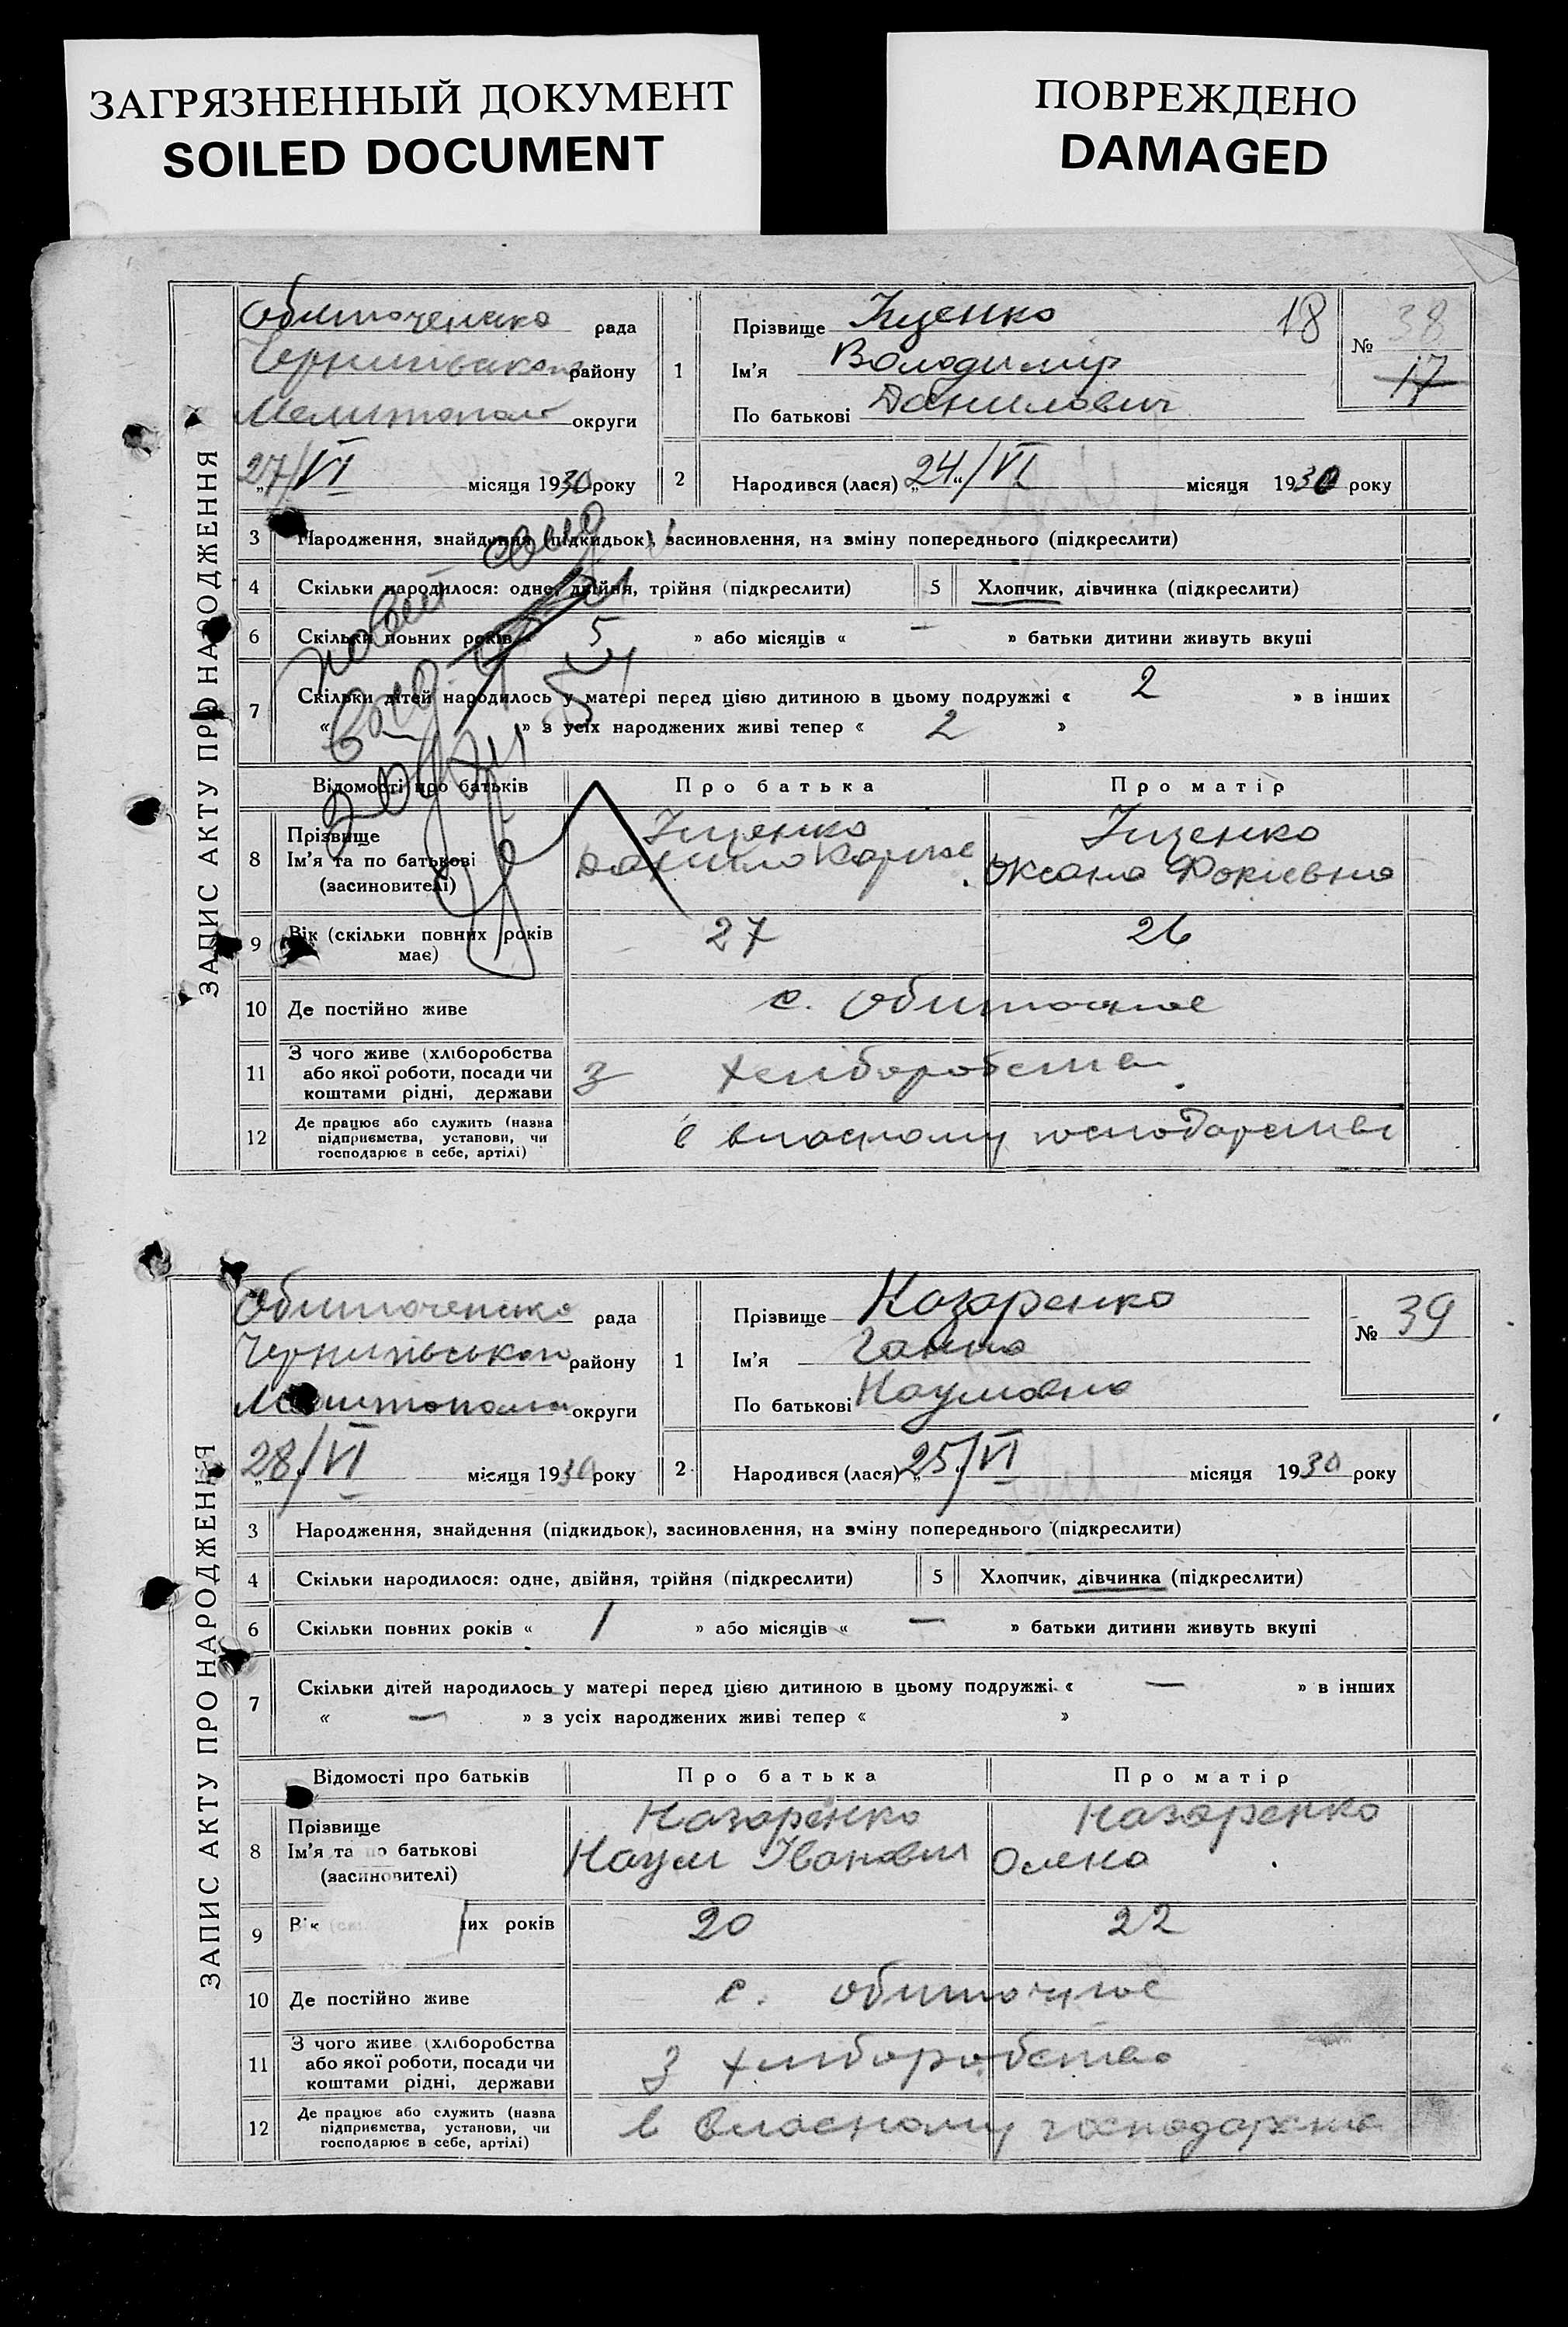 ЗАГРЯЗНЕННЫЙ ДОКУМЕНТ
SOILED DOCUMENT
ПОВРЕЖДЕНО
DAMAGED
ЗАПИС АКТУ ПРО НАРОДЖЕННЯ
рада
району
Мелитопол округи
27/VI місяця 1930 року
1
Прізвище Іщенко 18
Ім'я Володимир
По батькові Данилович
№ 38
17
2 Народився (лася) „24“/VI місяця 1930 року
3 Народження, знайдення (підкидьок), засиновлення, на зміну попереднього (підкреслити)
4 Скільки народилося: одне, двійня, трійня (підкреслити)
5 Хлопчик, дівчинка (підкреслити)
6 Скільки повних років « 5 » або місяців « — » батьки дитини живуть вкупі
7 Скільки дітей народилось у матері перед цією дитиною в цьому подружжі « 2 » в інших
« » з усіх народжених живі тепер « 2 »
Відомості про батьків
Про батька
Про матір
8 Прізвище
Ім'я та по батькові
(засиновителі)
Іщенко
Данило
Іщенко
Оксана Фокиевна
9 Вік (скільки повних років має)
27
26
10 Де постійно живе
с. Обиточное
11 З чого живе (хліборобства
або якої роботи, посади чи
коштами рідні, держави
З хліборобства
12 Де працює або служить (назва
підприємства, установи, чи
господарює в себе, артілі)
в власному господарстві
ЗАПИС АКТУ ПРО НАРОДЖЕННЯ
рада
Чернигівського району
округи
„28/VI місяця 1930 року
1
Прізвище Назаренко
Ім'я Ганна
По батькові Наумовна
№ 39
2 Народився (лася) „25/VI місяця 1930 року
3 Народження, знайдення (підкидьок), засиновлення, на зміну попереднього (підкреслити)
4 Скільки народилося: одне, двійня, трійня (підкреслити)
5 Хлопчик, дівчинка (підкреслити)
6 Скільки повних років « 1 » або місяців « — » батьки дитини живуть вкупі
7 Скільки дітей народилось у матері перед цією дитиною в цьому подружжі « — » в інших
« — » з усіх народжених живі тепер « »
Відомості про батьків
Про батька
Про матір
8 Прізвище
Ім'я та по батькові
(засиновителі)
Назаренко
Наум Іванович
Назаренко
Олена
9 Вік их років
20
22
10 Де постійно живе
с. Обиточное
11 З чого живе (хліборобства
або якої роботи, посади чи
коштами рідні, держави
З хліборобства
12 Де працює або служить (назва
підприємства, установи, чи
господарює в себе, артілі)
в власному господарстві